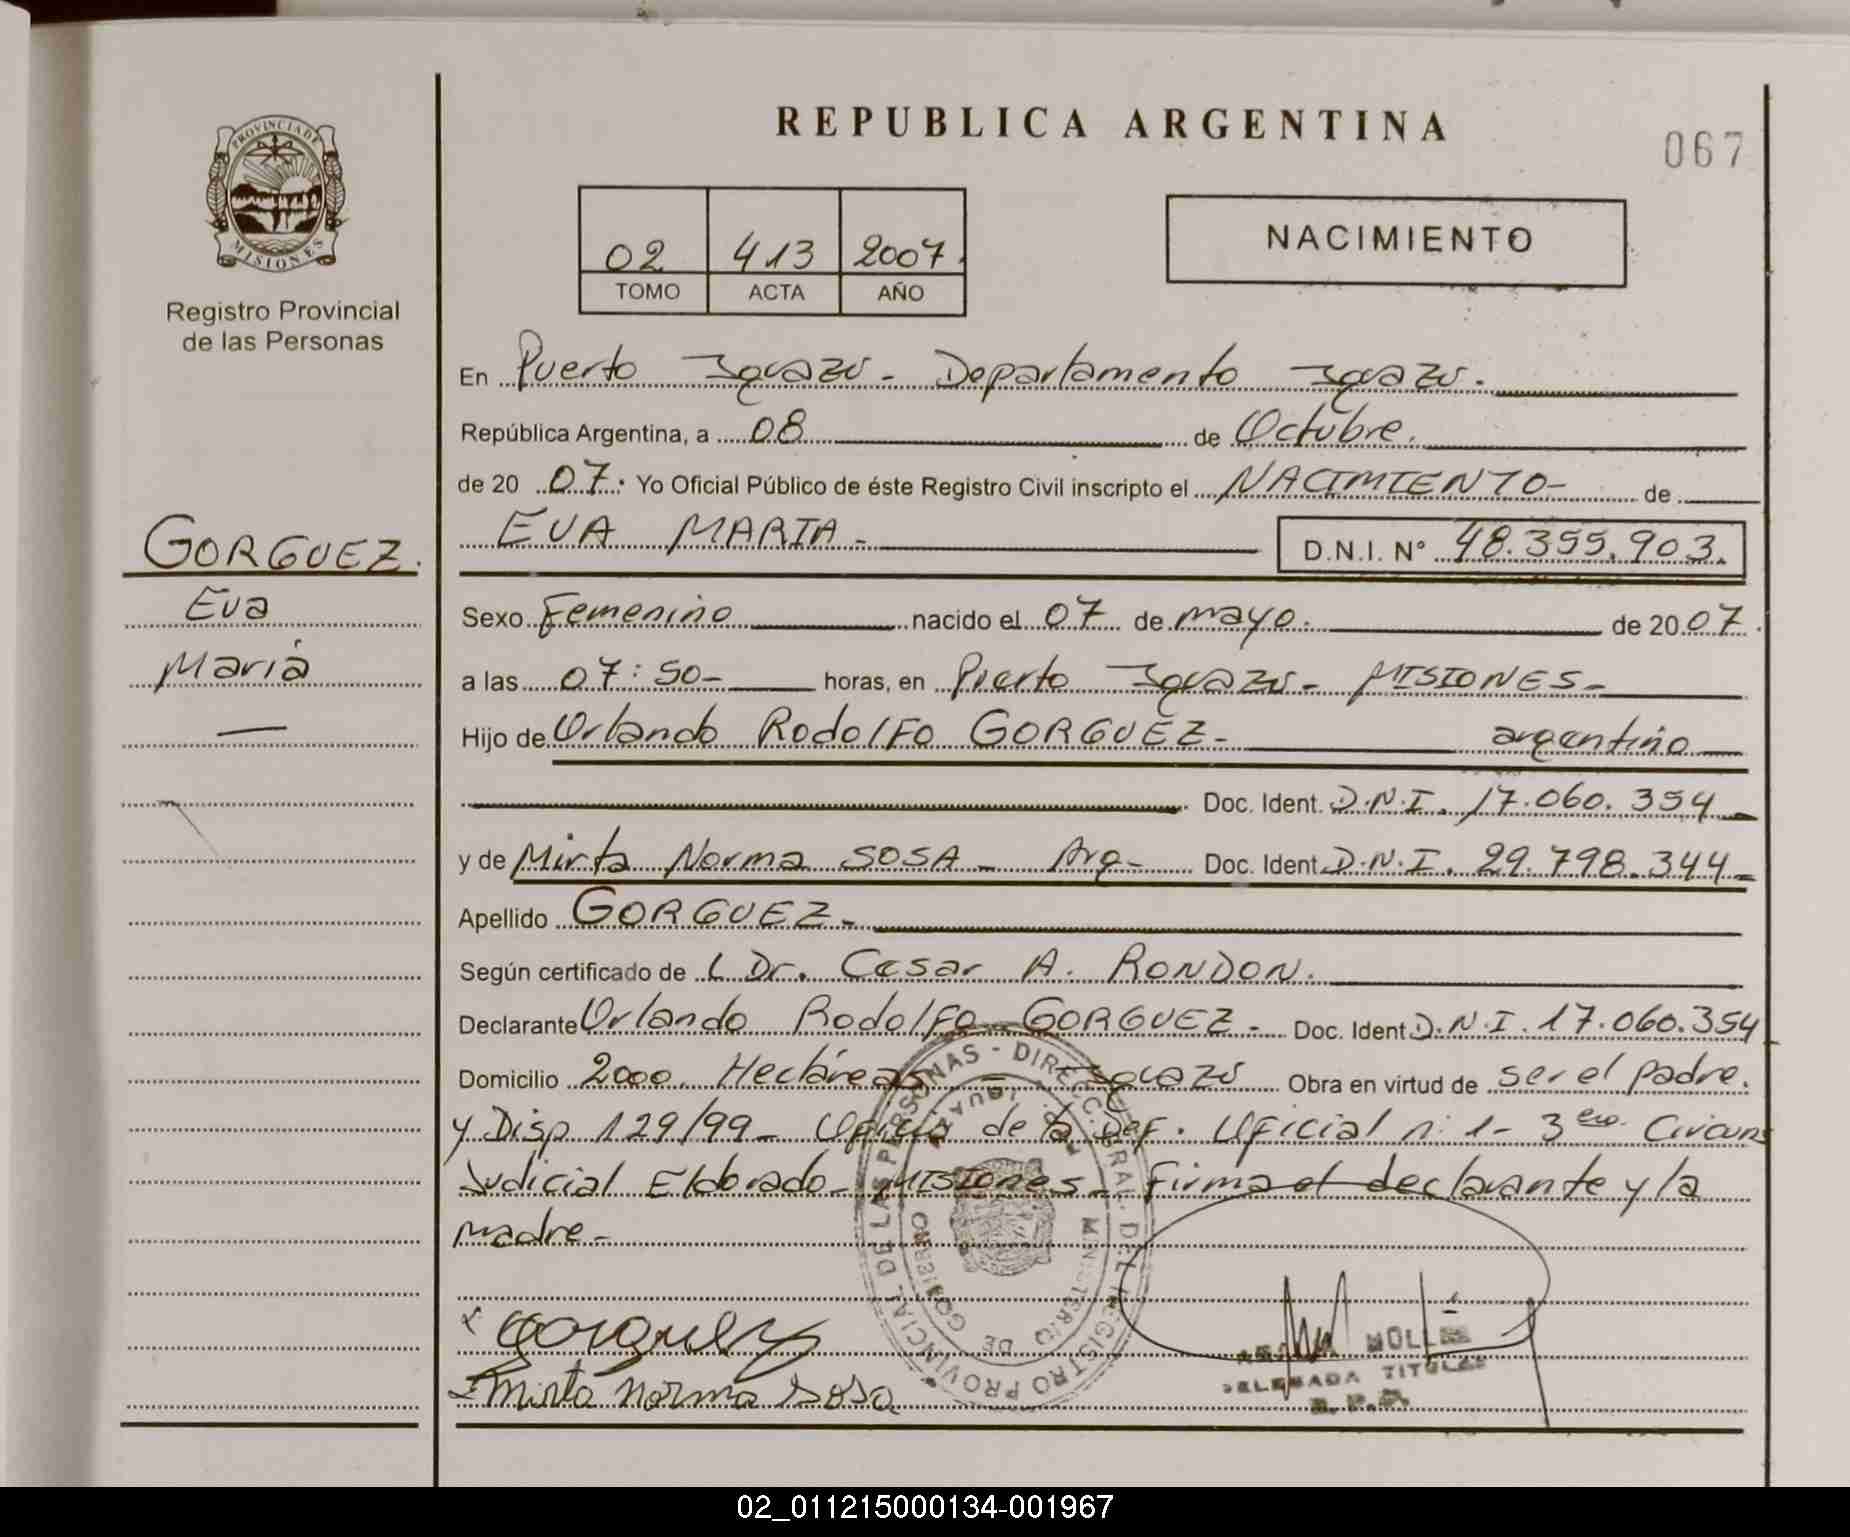 REPUBLICA ARGENTINA
067
PROVINCIA DE MISIONES
Registro Provincial
de las Personas
02 413 2007
TOMO ACTA AÑO
NACIMIENTO
En Puerto Iguazú - Departamento Iguazú.
República Argentina, a 08 de Octubre.
de 20 07. Yo Oficial Público de éste Registro Civil inscripto el NACIMIENTO - de
EVA MARIA - D.N.I. Nº 48.355.903.
GORGUEZ.
Eva
María
—
Sexo Femenino nacido el 07 de mayo. de 20 07.
a las 07:50- horas, en Puerto Iguazú - MISIONES -
Hijo de Orlando Rodolfo GORGUEZ - argentino
Doc. Ident. D.N.I. 17.060.354
y de Mirta Norma SOSA - Arg- Doc. Ident D.N.I. 29.798.344-
Apellido GORGUEZ -
Según certificado de Dr. Cesar A. RONDON.
Declarante Orlando Rodolfo GORGUEZ - Doc. Ident D.N.I. 17.060.354
Domicilio 2000 Hectáreas - Iguazú Obra en virtud de ser el padre.
y Disp 129/99 - Oficio de la Def. Oficial n: 1- 3era. Circuns
Judicial Eldorado - MISIONES - Firma el declarante y la
madre -
Gorguez
Mirta Norma Sosa
DIRECC. GRAL. DEL REGISTRO PROVINCIAL DE LAS PERSONAS -
MINISTERIO DE GOBIERNO
DELEGADA TITULAR
R.P.P.
02_011215000134-001967